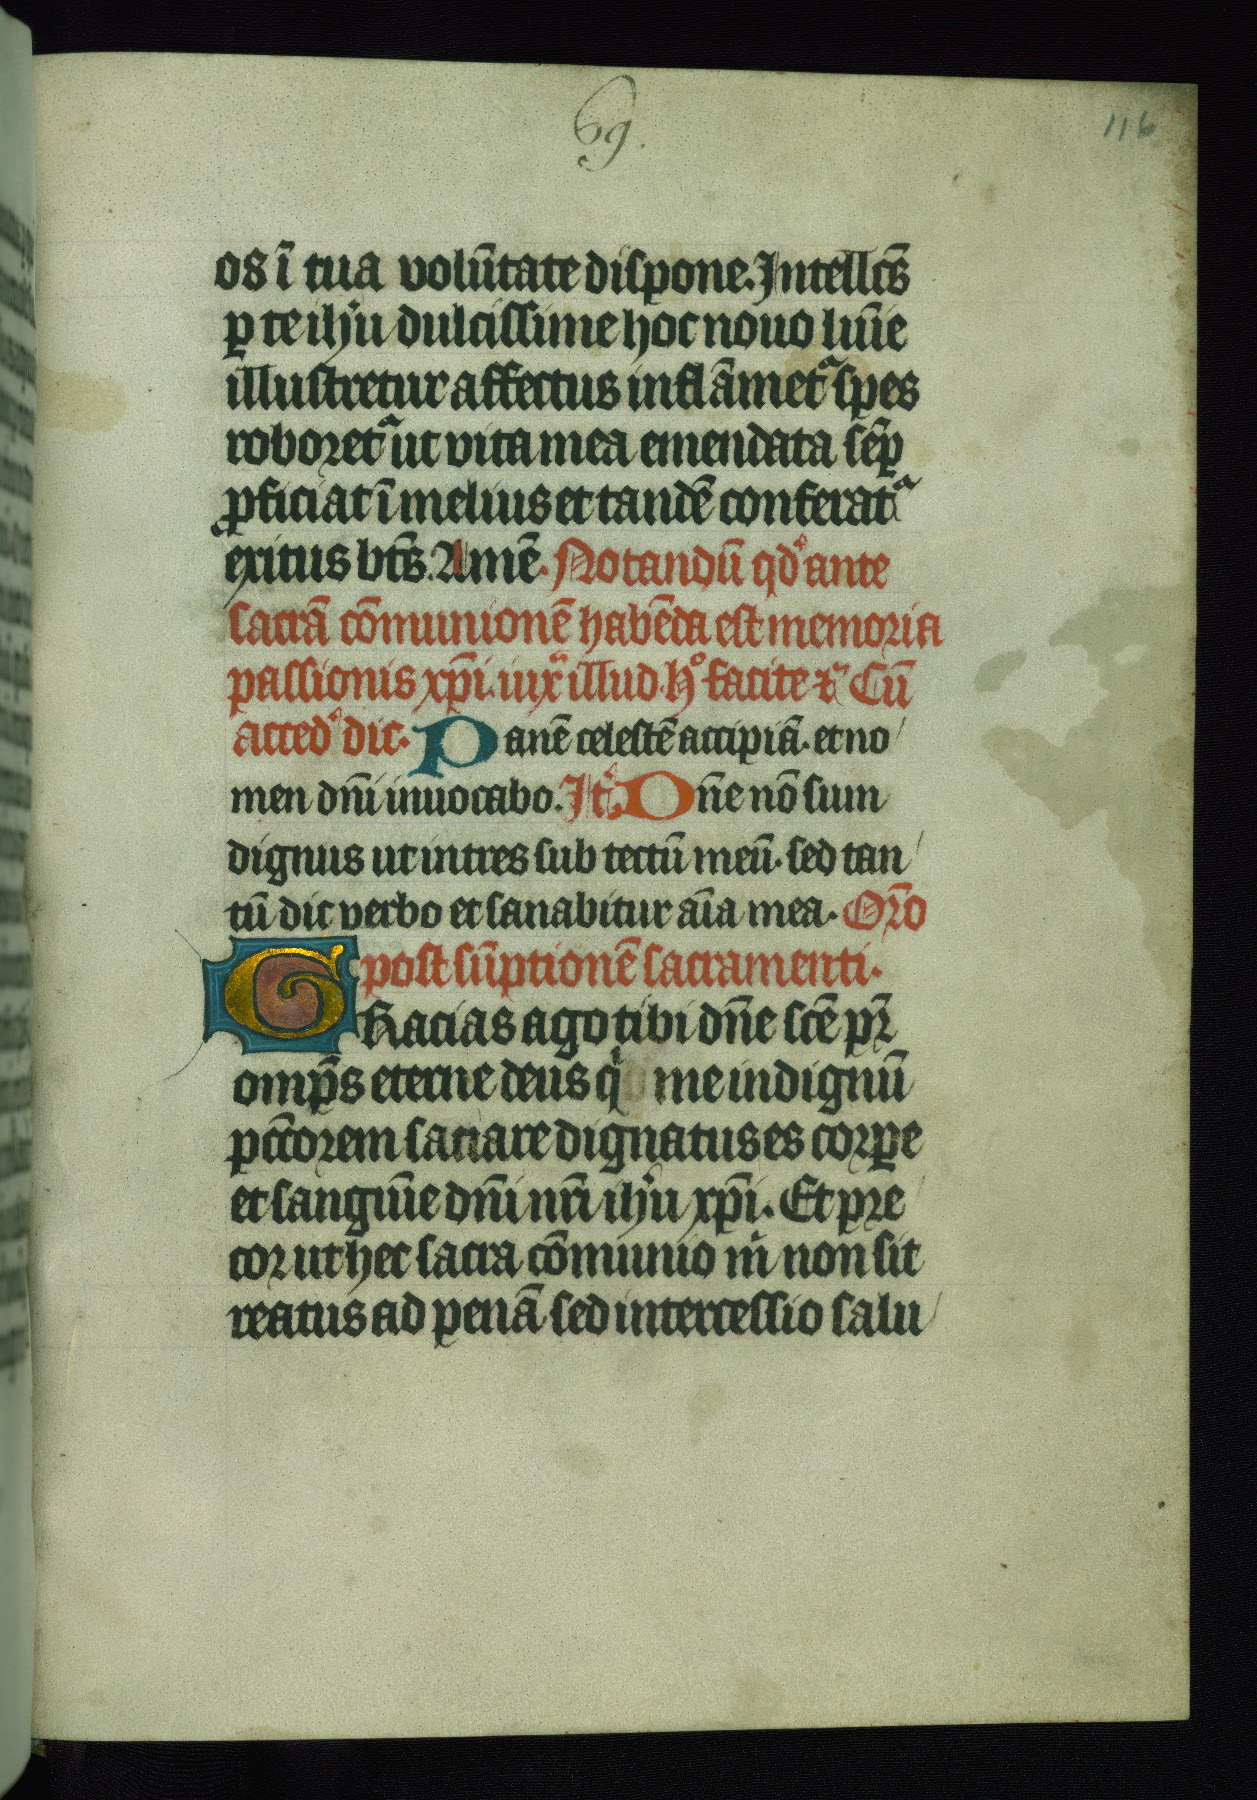 69.
116
os ī tua volūtate dispone. Intellc̄s
ꝑ te ihū dulcissime hoc nouo lūīe
illustretur affectus inflāmetᷣ spes
roboretᷣ ut vita mea emendata sēꝑ
ꝓficiat ī melius et tandē conferatᷣ
exitus bt̄s. Amē. Notandū qd̓ ante
sacrā cōmunionē habēda est memoria
passionis xp̄i. iuxᷓ illud. hͦ facite ⁊c̄ Cū
acced̓ dic. Panē celestē accipiā. et no
men dn̄i inuocabo. It̄. Dn̄e nō sum
dignus ut intres sub tectū meū. sed tan
tū dic verbo et sanabitur aīa mea. Orō
post sūptionē sacramenti.
GRacias ago tibi dn̄e scē pr̄
omp̄s eterne deus qͥ me indignū
pcc̄orem saciare dignatus es corꝑe
et sanguīe dn̄i nr̄i ihū xp̄i. Et pre
cor ut hec sacra cōmunio mͥ non sit
reatus ad penā sed intercessio salu